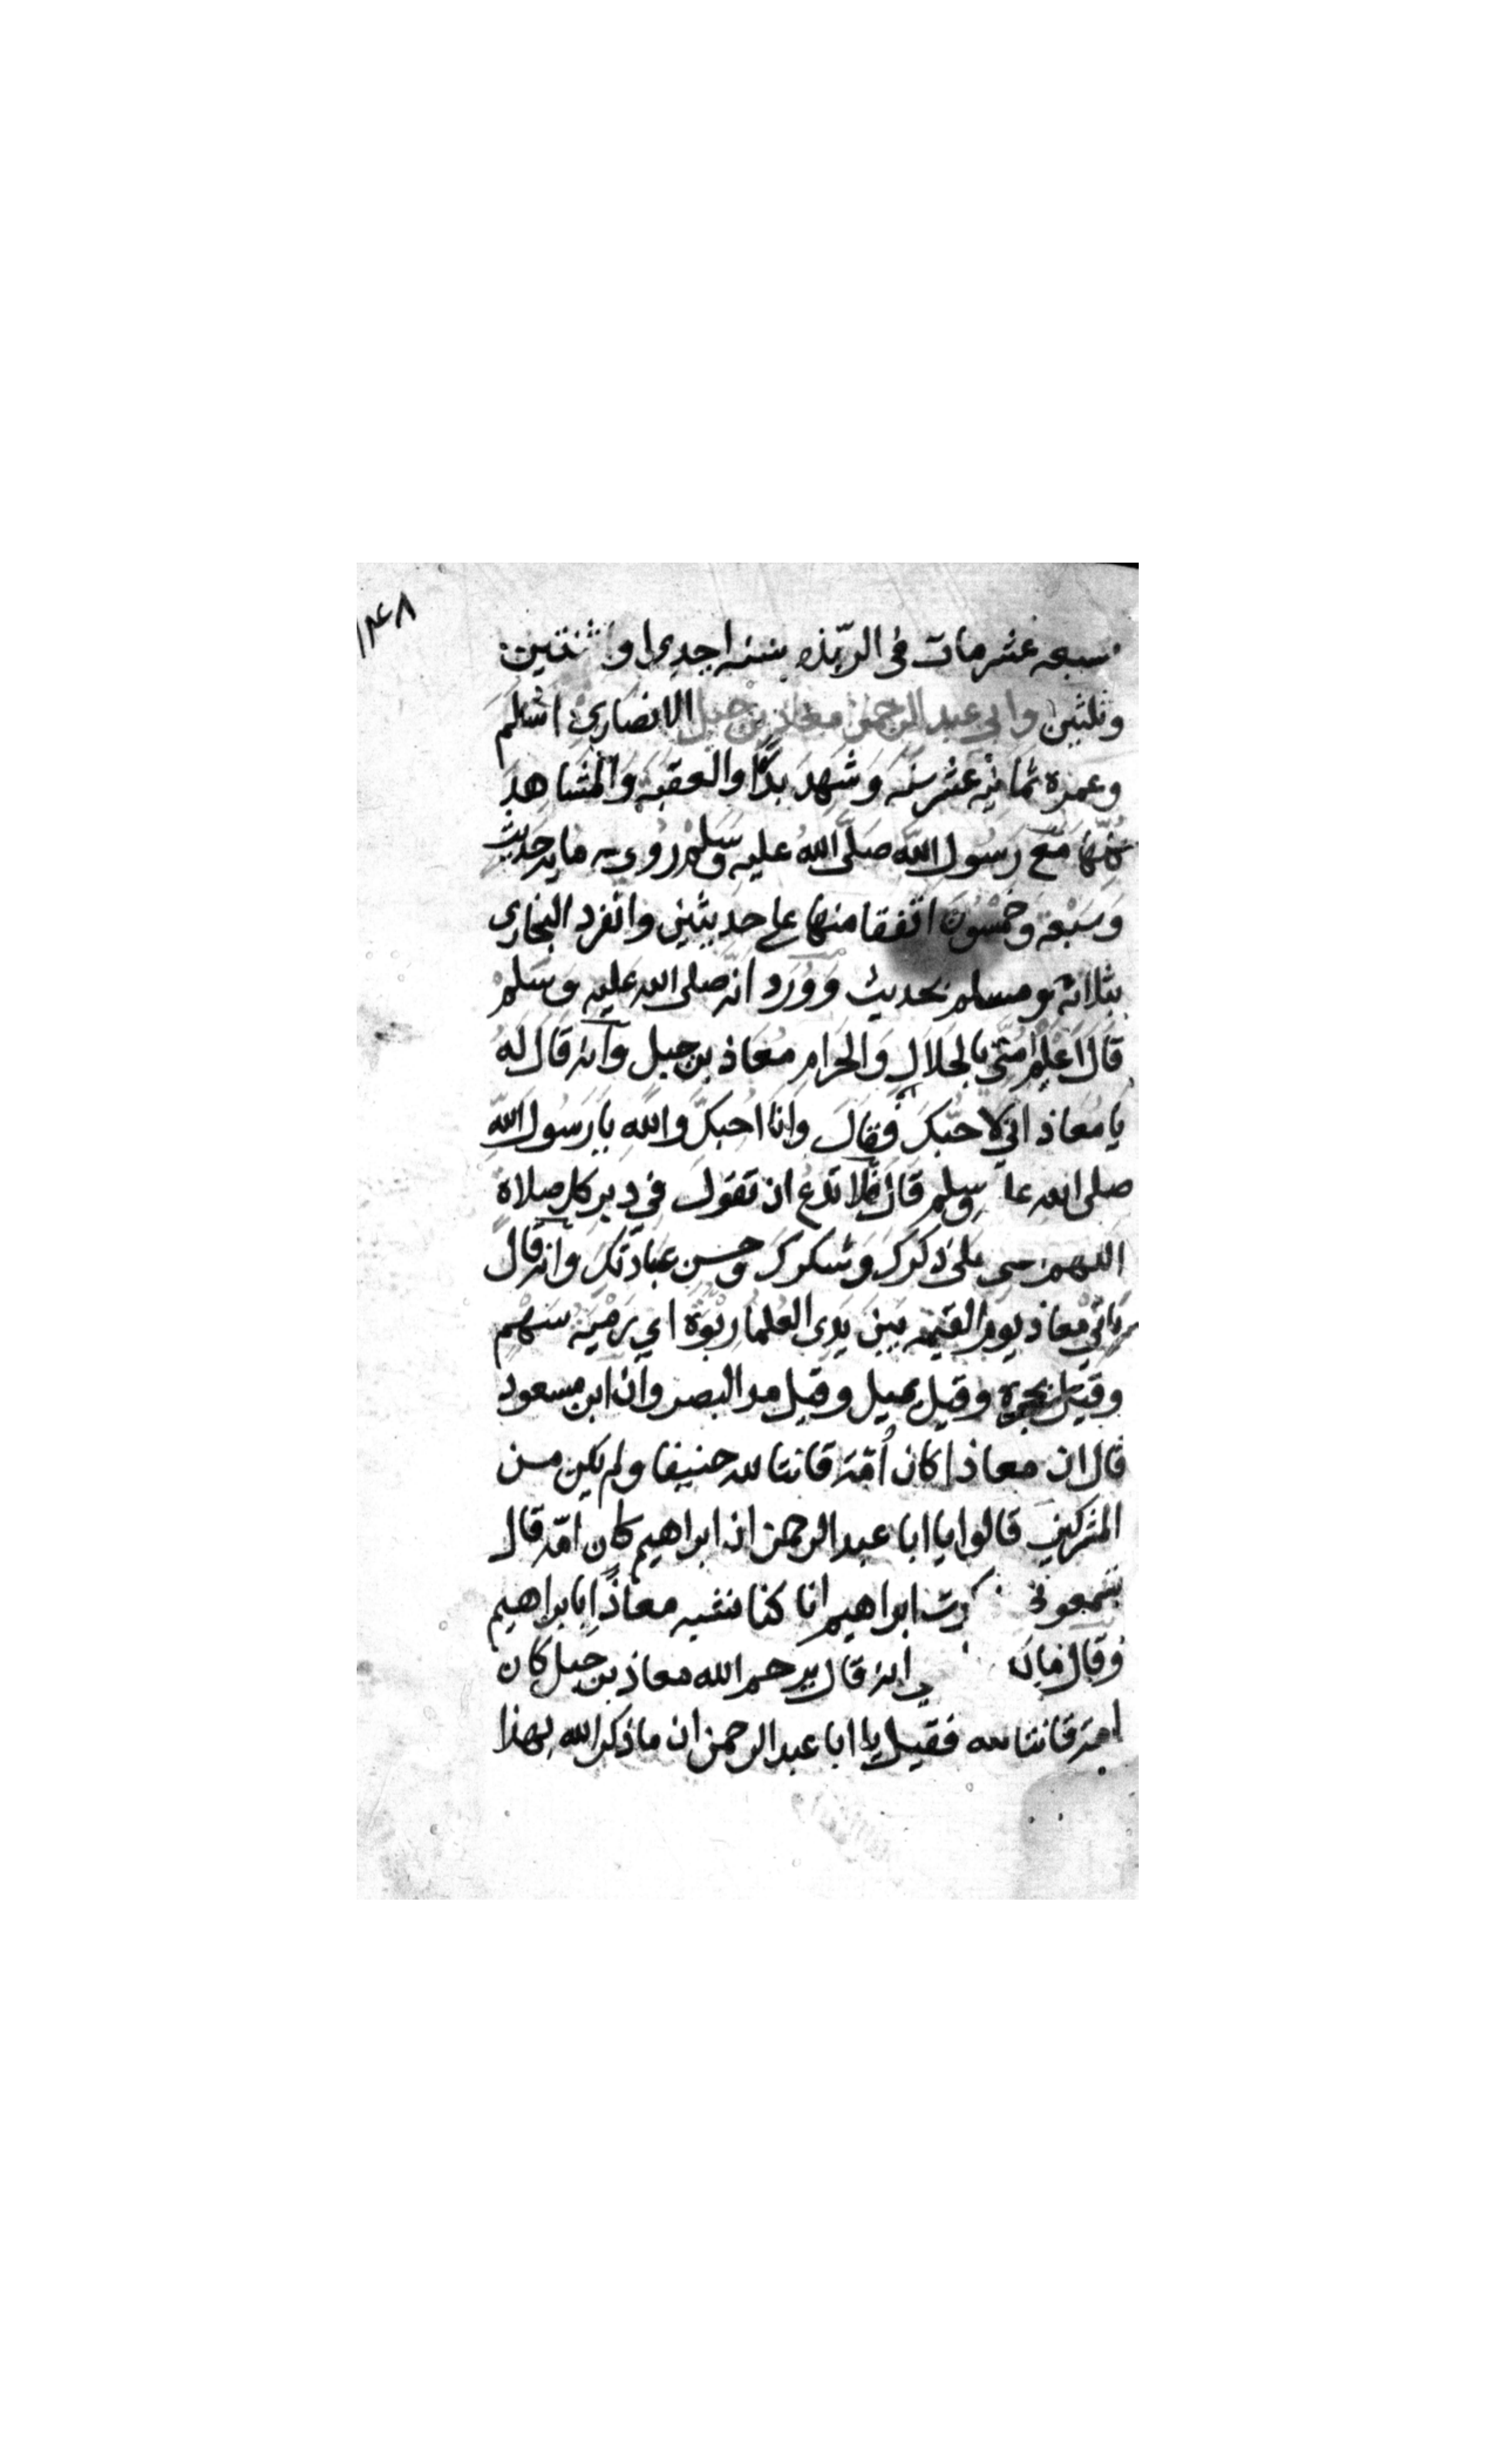 ١٤٨
سبعة عشر مات في الربذة سنة احدى او ثنتين
وثلثين وابي عبد الرحمن معاذ بن جبل الانصاري اسْلَمَ
وعمره ثمانية عشر سنة وَشَهِدَ بدرًا والعقبة وَالْمَشَاهِدَ
كلّهَا مَعَ رَسُول اللّه صَلَّى اللّهُ عليه وَسَلم روي له مايه حَديث
وَسَبْعة وَخَمْسُونَ اتفقا منها على حديثين وانفرد البخاري
بثلاثة ومسلم بحديث وَوُرَد انّه صلى الله عَليه وَسَلم
قَالَ اَعْلم اُمَّتي بالحَلاَلِ وَالحَرامِ مُعَاذ بن جبل وَانه قَالَ لَهُ
يَا مُعَاذ اني لاحبّكَ فقَالَ وَانَا احُبكَ وَاللّهِ يَا رَسُول اللّهِ
صلى الله وسلم قَالَ فَلا تَدَعْ ان تقولَ في دبر كل صلاة
اللهم على ذكركَ وَشكركَ وحسن عبَادتكَ وَانه قَالَ
يَاتي مُعَاذ يوم القيمه بَينَ يَدَي العُلمَا رَبْوَة اي رَمْيَة سَهْمٍ
وقيل بحجر وقيل بميل وقيل مد البصر وان ابن مسعود
قال ان معاذا كان اُمّة قانتا لله حنيفا ولم يكن من
المشركين قالوا يا ابا عبد الرحمن ان ابراهيم كان امّة قال
كرت ابراهيم انا كنا نشبه معاذًا بابراهيم
وقال انه قال يرحم الله معاذ بن جبل كان
امة قانتا لله فقيل يا ابا عبد الرحمن ان ما ذكر الله بهذا